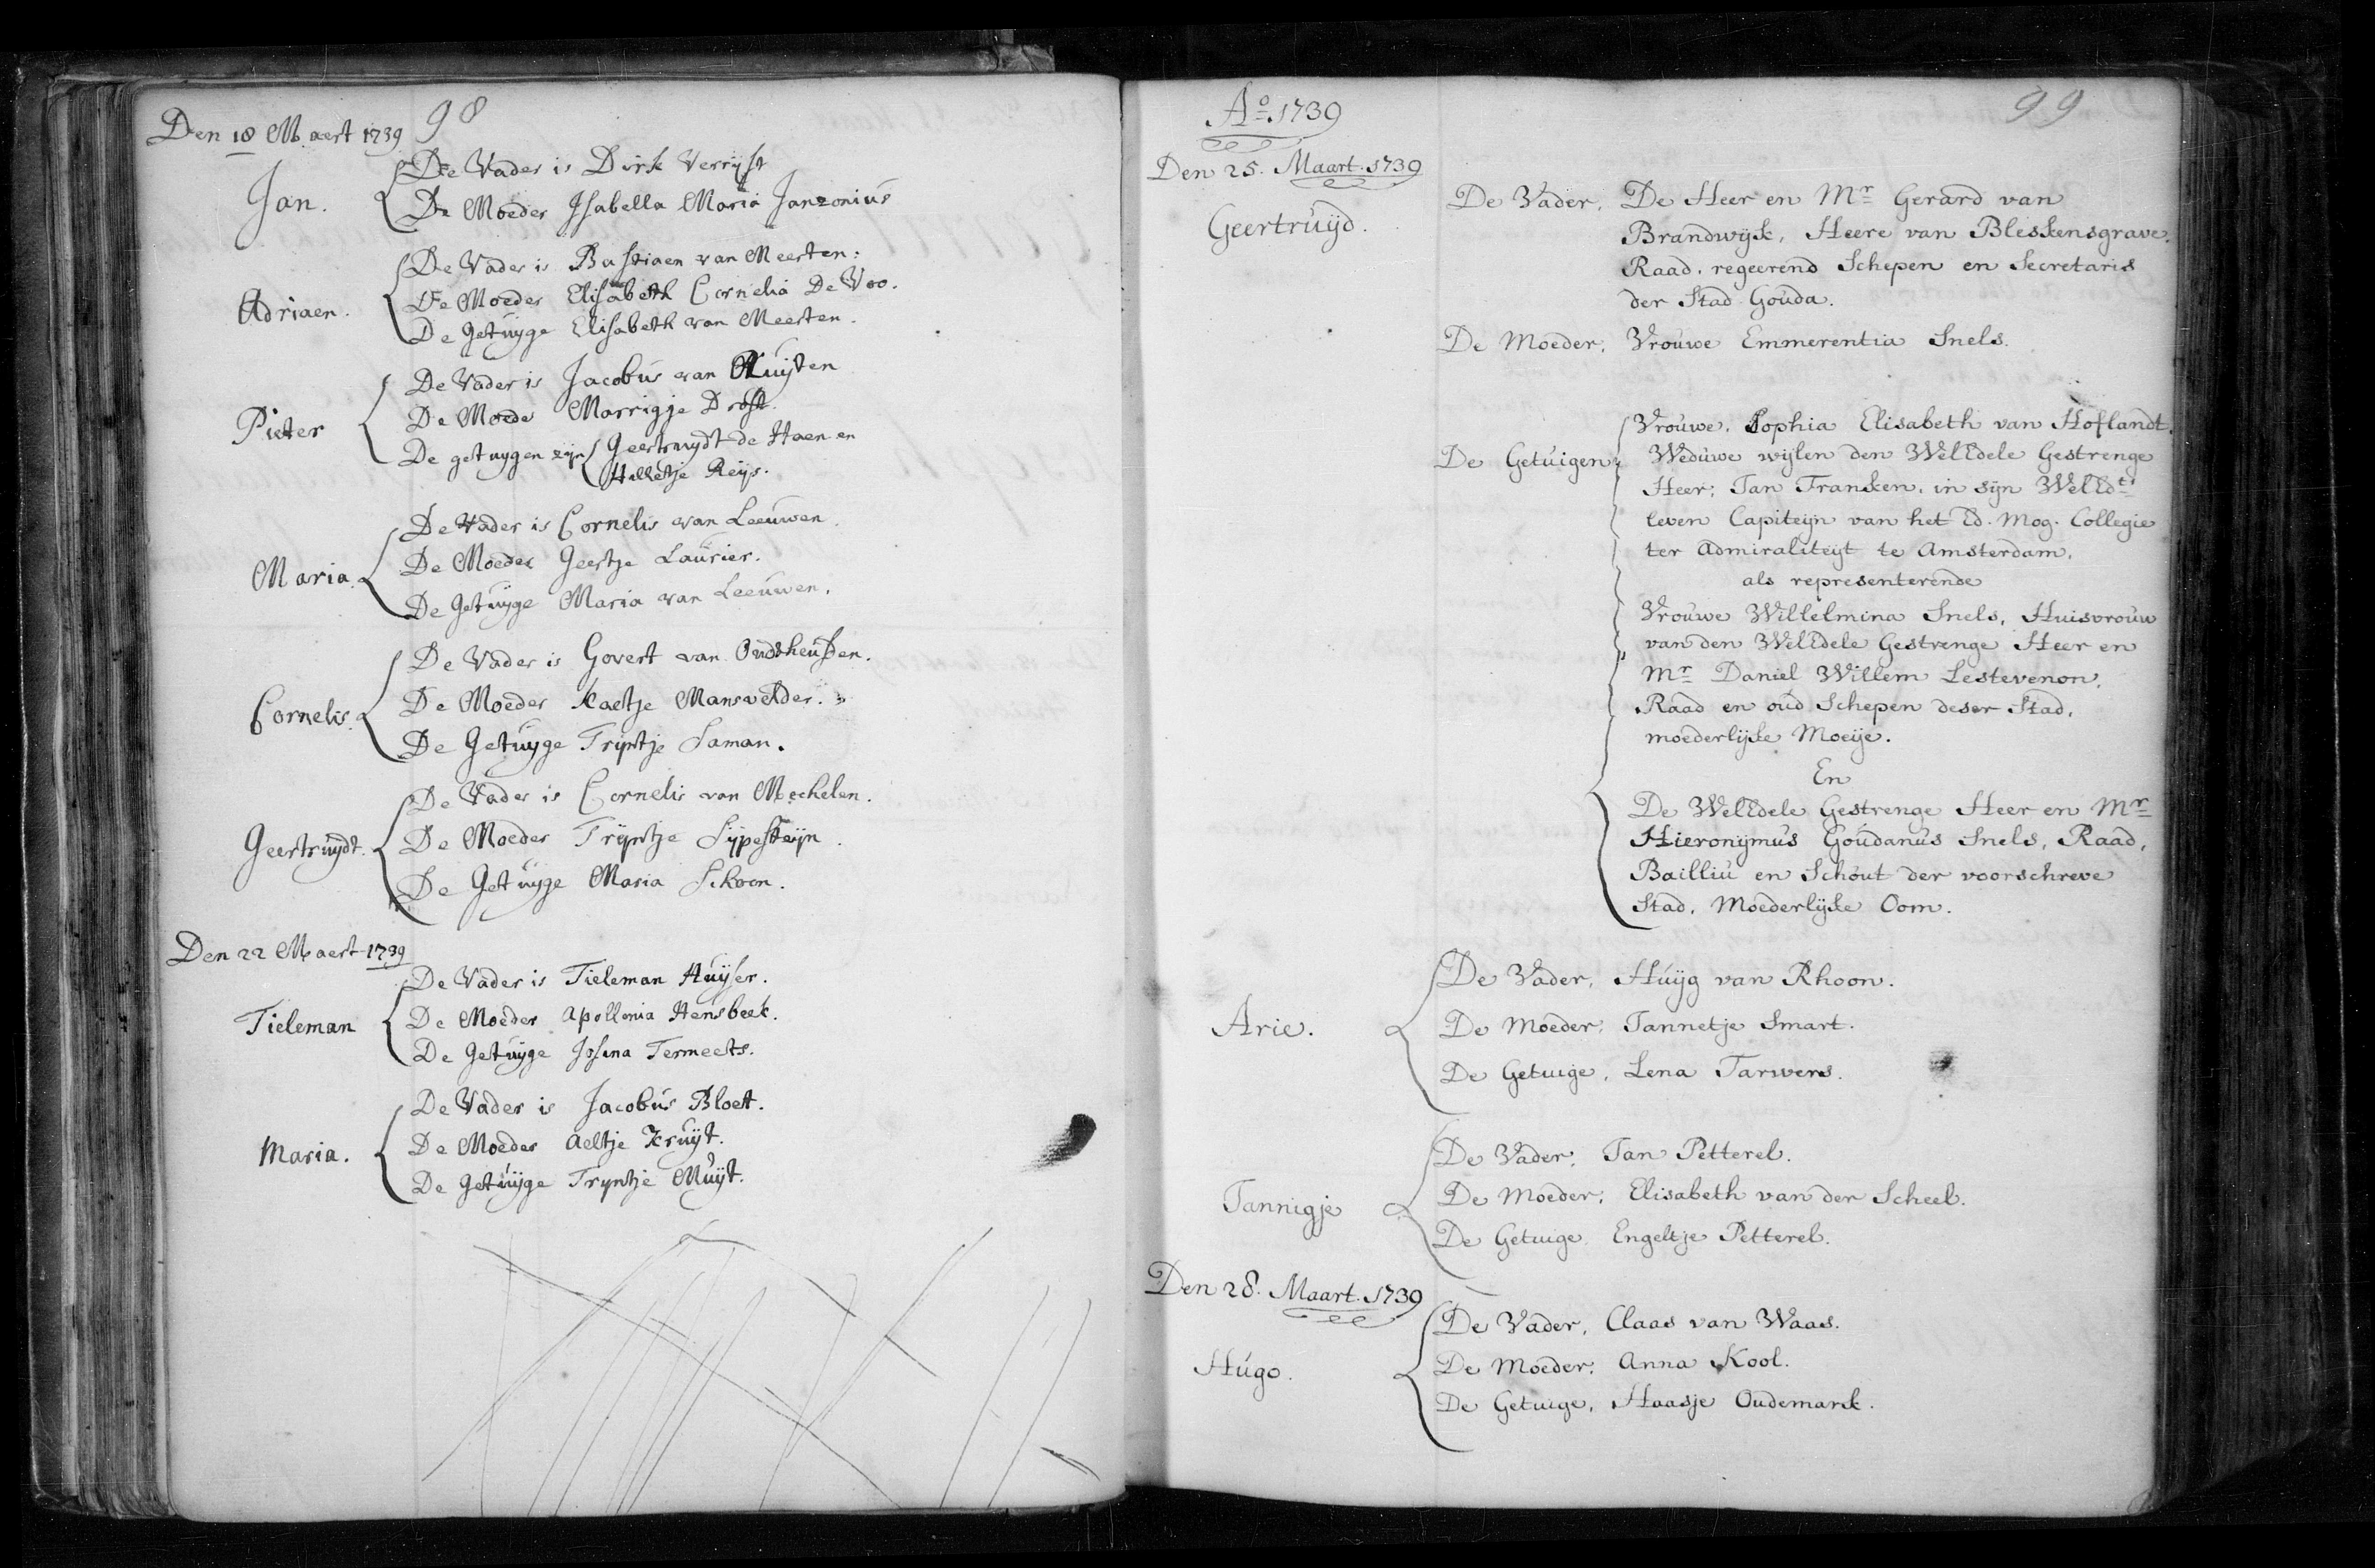 98
Den 18 Maert 1739
Jan.
De Vader is Dirk Verrijst
De Moeder Isabella Maria Janzonius
Adriaen.
De Vader is Bastiaen van Meerten:
De Moeder Elisabeth Cornelia De Voo.
De Getuyge Elisabeth van Meerten.
Pieter
De Vader is Jacobus van
De Moeder Marrigje Drost.
De getuygen zijn Geertruydt de Haen en
Hilletje Reijs.
Maria.
De Vader is Cornelis van Leeuwen.
De Moeder Geertje Laurier.
De Getuyge Maria van Leeuwen.
Cornelis.
De Vader is Govert van Oudtheusden.
De Moeder Kaetje Mansvelder.
De Getuyge Trijntje Saman.
Geertruydt.
De Vader is Cornelis van Mechelen.
De Moeder Trijntje Sijpesteijn.
De Getuyge Maria Schoon.
Den 22 Maert 1739
Tieleman
De Vader is Tieleman Huijser.
De Moeder Apollonia Hensbeek.
De Getuyge Josina Termeets.
Maria.
De Vader is Jacobus Bloet.
De Moeder Aeltje Kruijt.
De Getuyge Trijntje Muijt.
99
Ao. 1739
Den 25. Maart. 1739
Geertruijd.
De Vader, De Heer en Mr Gerard van
Brandwijk, Heere van Bleskensgrave,
Raad, regeerend Schepen en Secretaris
der Stad Gouda.
De Moeder, Vrouwe Emmerentia Snels.
De Getuigen
Vrouwe, Sophia Elisabeth van Hoflandt,
Weduwe wijlen den WelEdele Gestrenge
Heer, Jan Franken, in sijn WelEdt
leven Capiteijn van het Ed. Mog. Collegie
ter Admiraliteijt te Amsterdam,
als representerende
Vrouwe Willelmina Snels, Huisvrouw
van den WelEdele Gestrenge Heer en
Mr Daniel Willem Lestevenon,
Raad en oud Schepen deser Stad,
moederlijke Moeije.
En
De WelEdele Gestrenge Heer en Mr
Hieronijmus Goudanus Snels, Raad,
Bailliu en Schout der voorschreve
Stad, Moederlijke Oom.
Arie.
De Vader, Huijg van Rhoon.
De Moeder, Jannetje Smart.
De Getuige, Lena Tarwers.
Jannigje
De Vader, Jan Petterel.
De Moeder, Elisabeth van der Scheel.
De Getuige Engeltje Petterel.
Den 28. Maart. 1739
Hugo.
De Vader, Claas van Waas.
De Moeder, Anna Kool.
De Getuige, Haasje Oudemark.